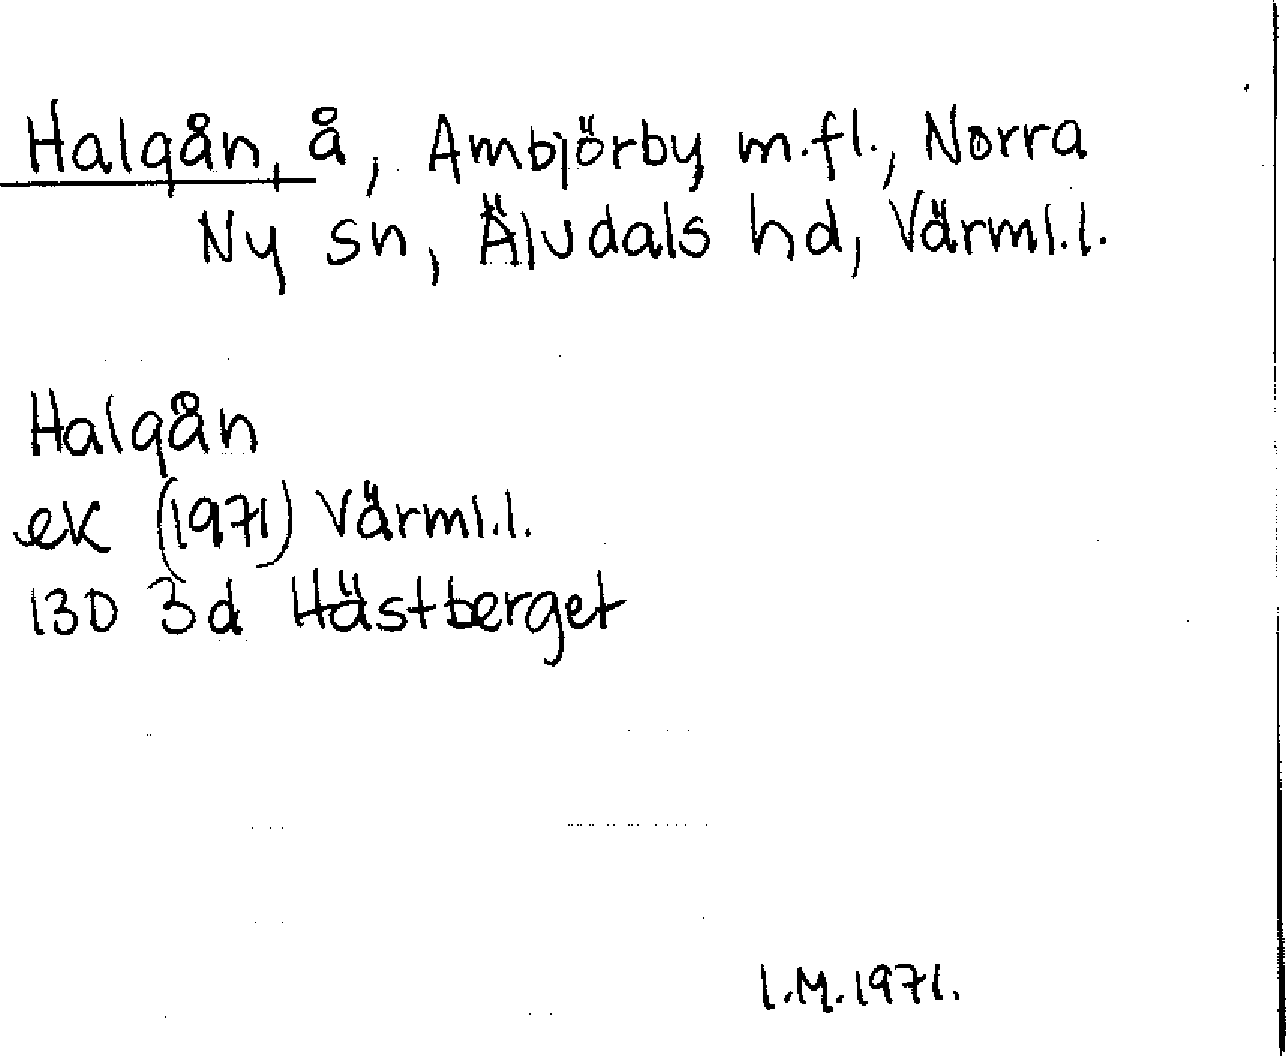 Halgån, å, Ambjörby m.fl., Norra
Ny sn, Älvdals hd, Värml.l.
Halgån
ek (1971) Värml.l.
13D 3d Hästberget
I.M. 1971.